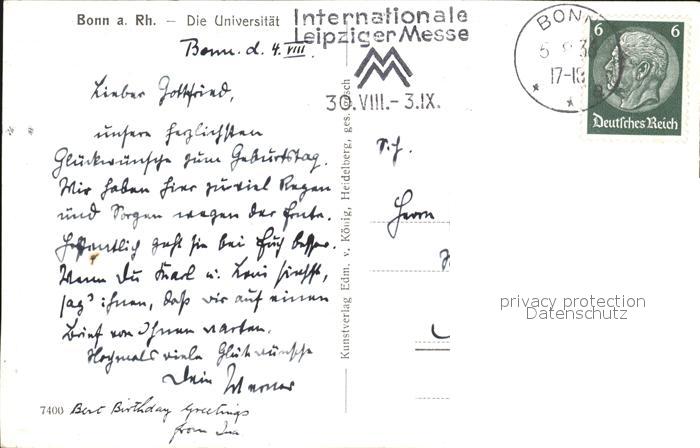 Bonn a. Rh. – Die Universität
Internationale
Leipziger Messe
30.VIII.–3.IX.
BONN
17-18
6 6
Deutsches Reich
Bonn. d. 4. VIII.
Lieber Gottfried,
unsere herzlichsten
Glückwünsche zum Geburtstag.
Wir haben hier zuviel Regen
und Sorgen wegen der Ernte.
Hoffentlich geht sie bei Euch besser.
Wenn Du Karl u. Loni siehst,
sag' ihnen, daß wir auf einen
Brief von Ihnen warten.
Nochmals viele Glückwünsche
Dein Werner
Kunstverlag Edm. v. König, Heidelberg, ges. gesch
Herrn
privacy protection
Datenschutz
7400 Best Birthday Greetings
from Ina